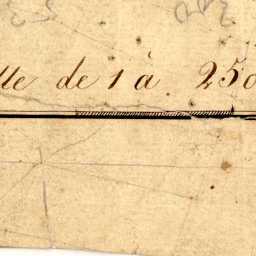 lle de 1 à 250